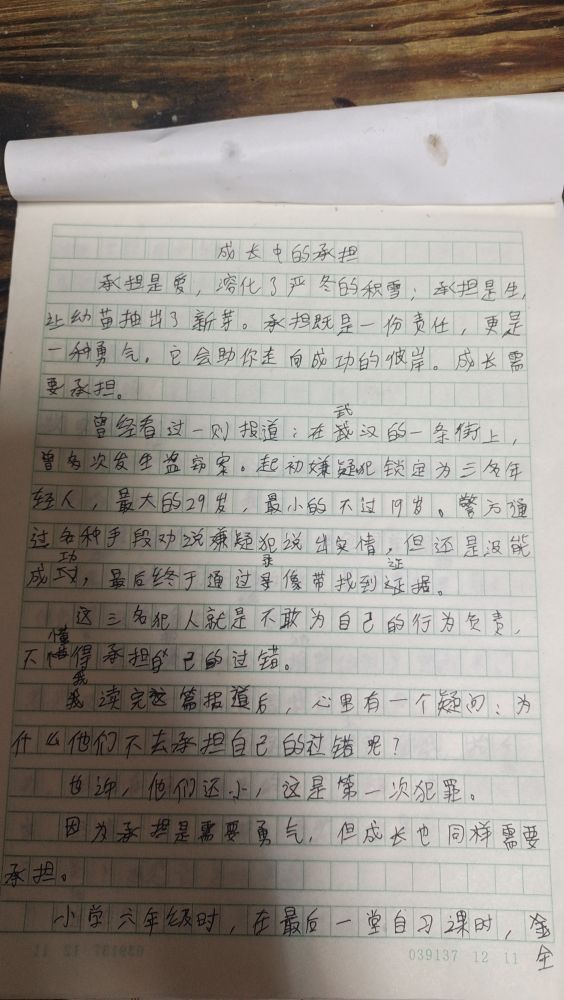 成长中的承担
承担是爱，溶化了严冬的积雪；承担是生，
让幼苗抽出了新芽。承担既是一份责任，更是
一种勇气。它会助你走向成功的彼岸。成长需
要承担。
武
曾经看过一则报道：在武汉的一条街上，
曾多次发生盗窃案。起初嫌疑犯锁定为三名年
轻人，最大的29岁，最小的不过19岁。警方通
过各种手段劝说嫌疑犯说出实情，但还是没能
功 录 证
成功，最后终于通过录像带找到证据。
这三名犯人就是不敢为自己的行为负责，
懂
不懂得承担自己的过错。
我
我读完这篇报道后，心里有一个疑问：为
什么他们不去承担自己的过错呢？
也许，他们还小，这是第一次犯罪。
因为承担是需要勇气，但成长也同样需要
承担。
小学六年级时，在最后一堂自习课时，金
全
039137 12 11